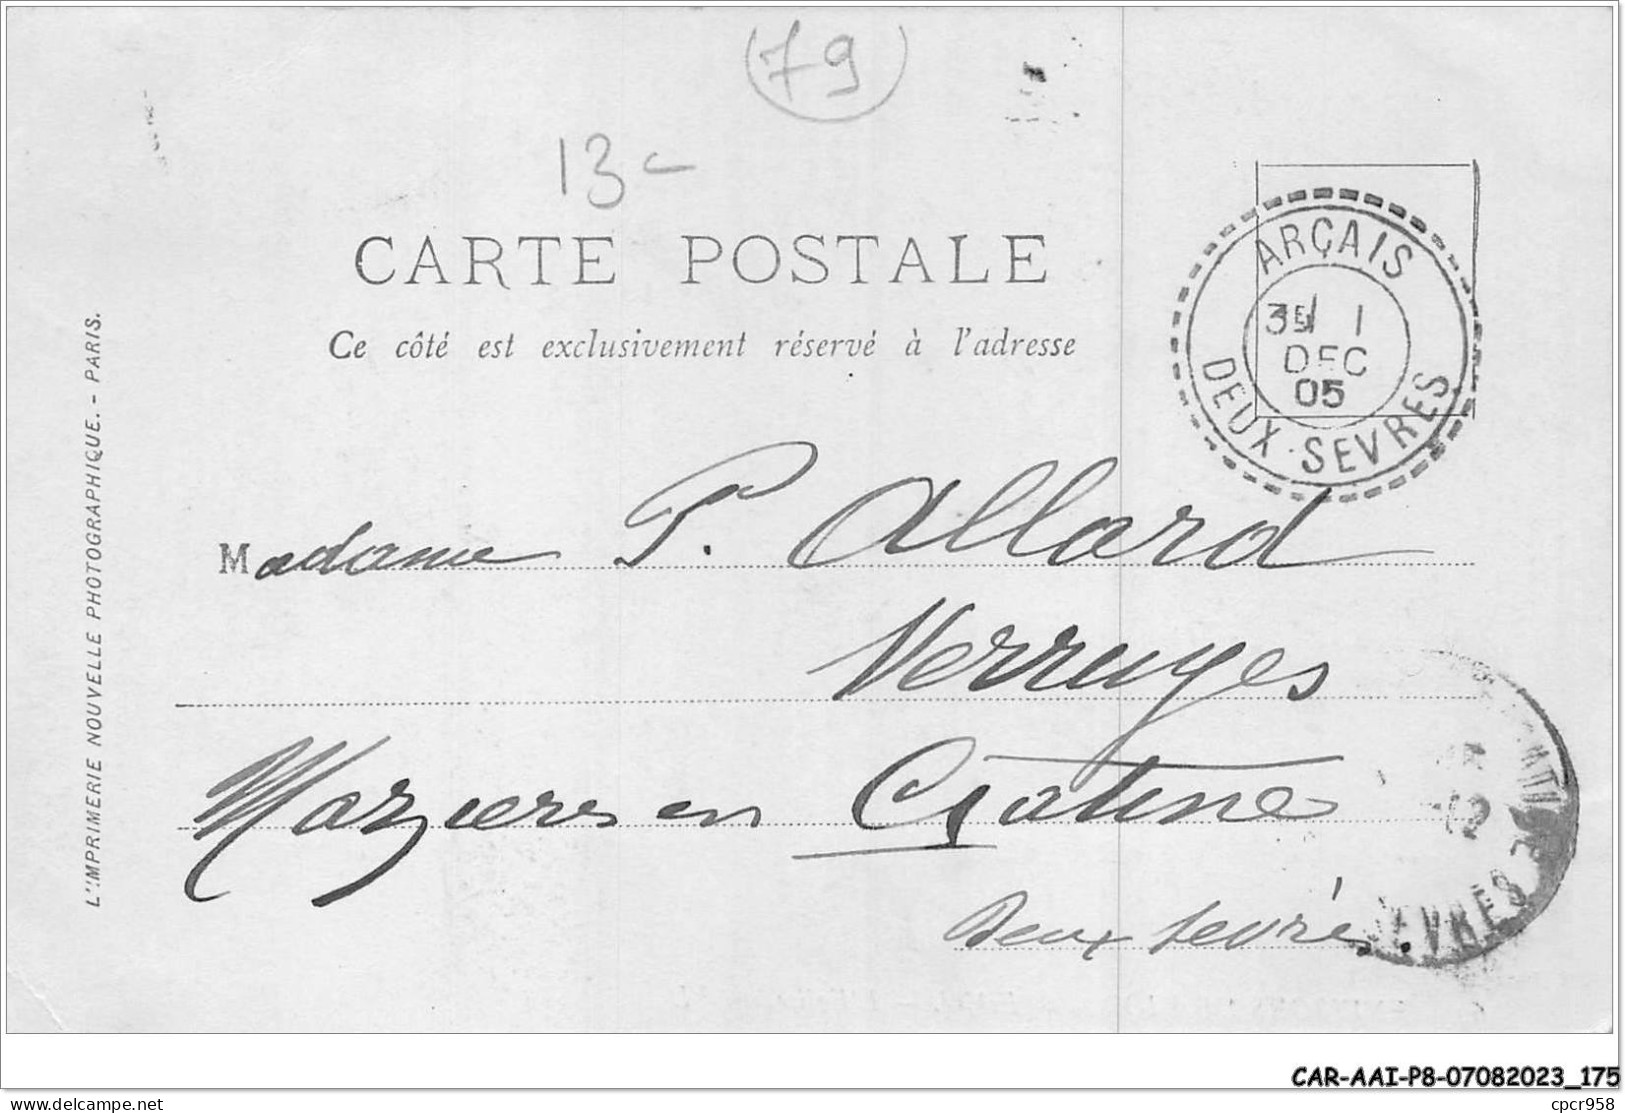 79
13
CARTE POSTALE
Ce côté est exclusivement réservé à l'adresse
ARÇAIS
1
DEC
05
DEUX-SEVRES
L'IMPRIMERIE NOUVELLE PHOTOGRAPHIQUE. - PARIS.
Madame P. Allard
Verruyes
Mazieres en Gatine
Deux Sevres
SEVRES
CAR-AAI-P8-07082023_175
delcampe.net
cpcr958